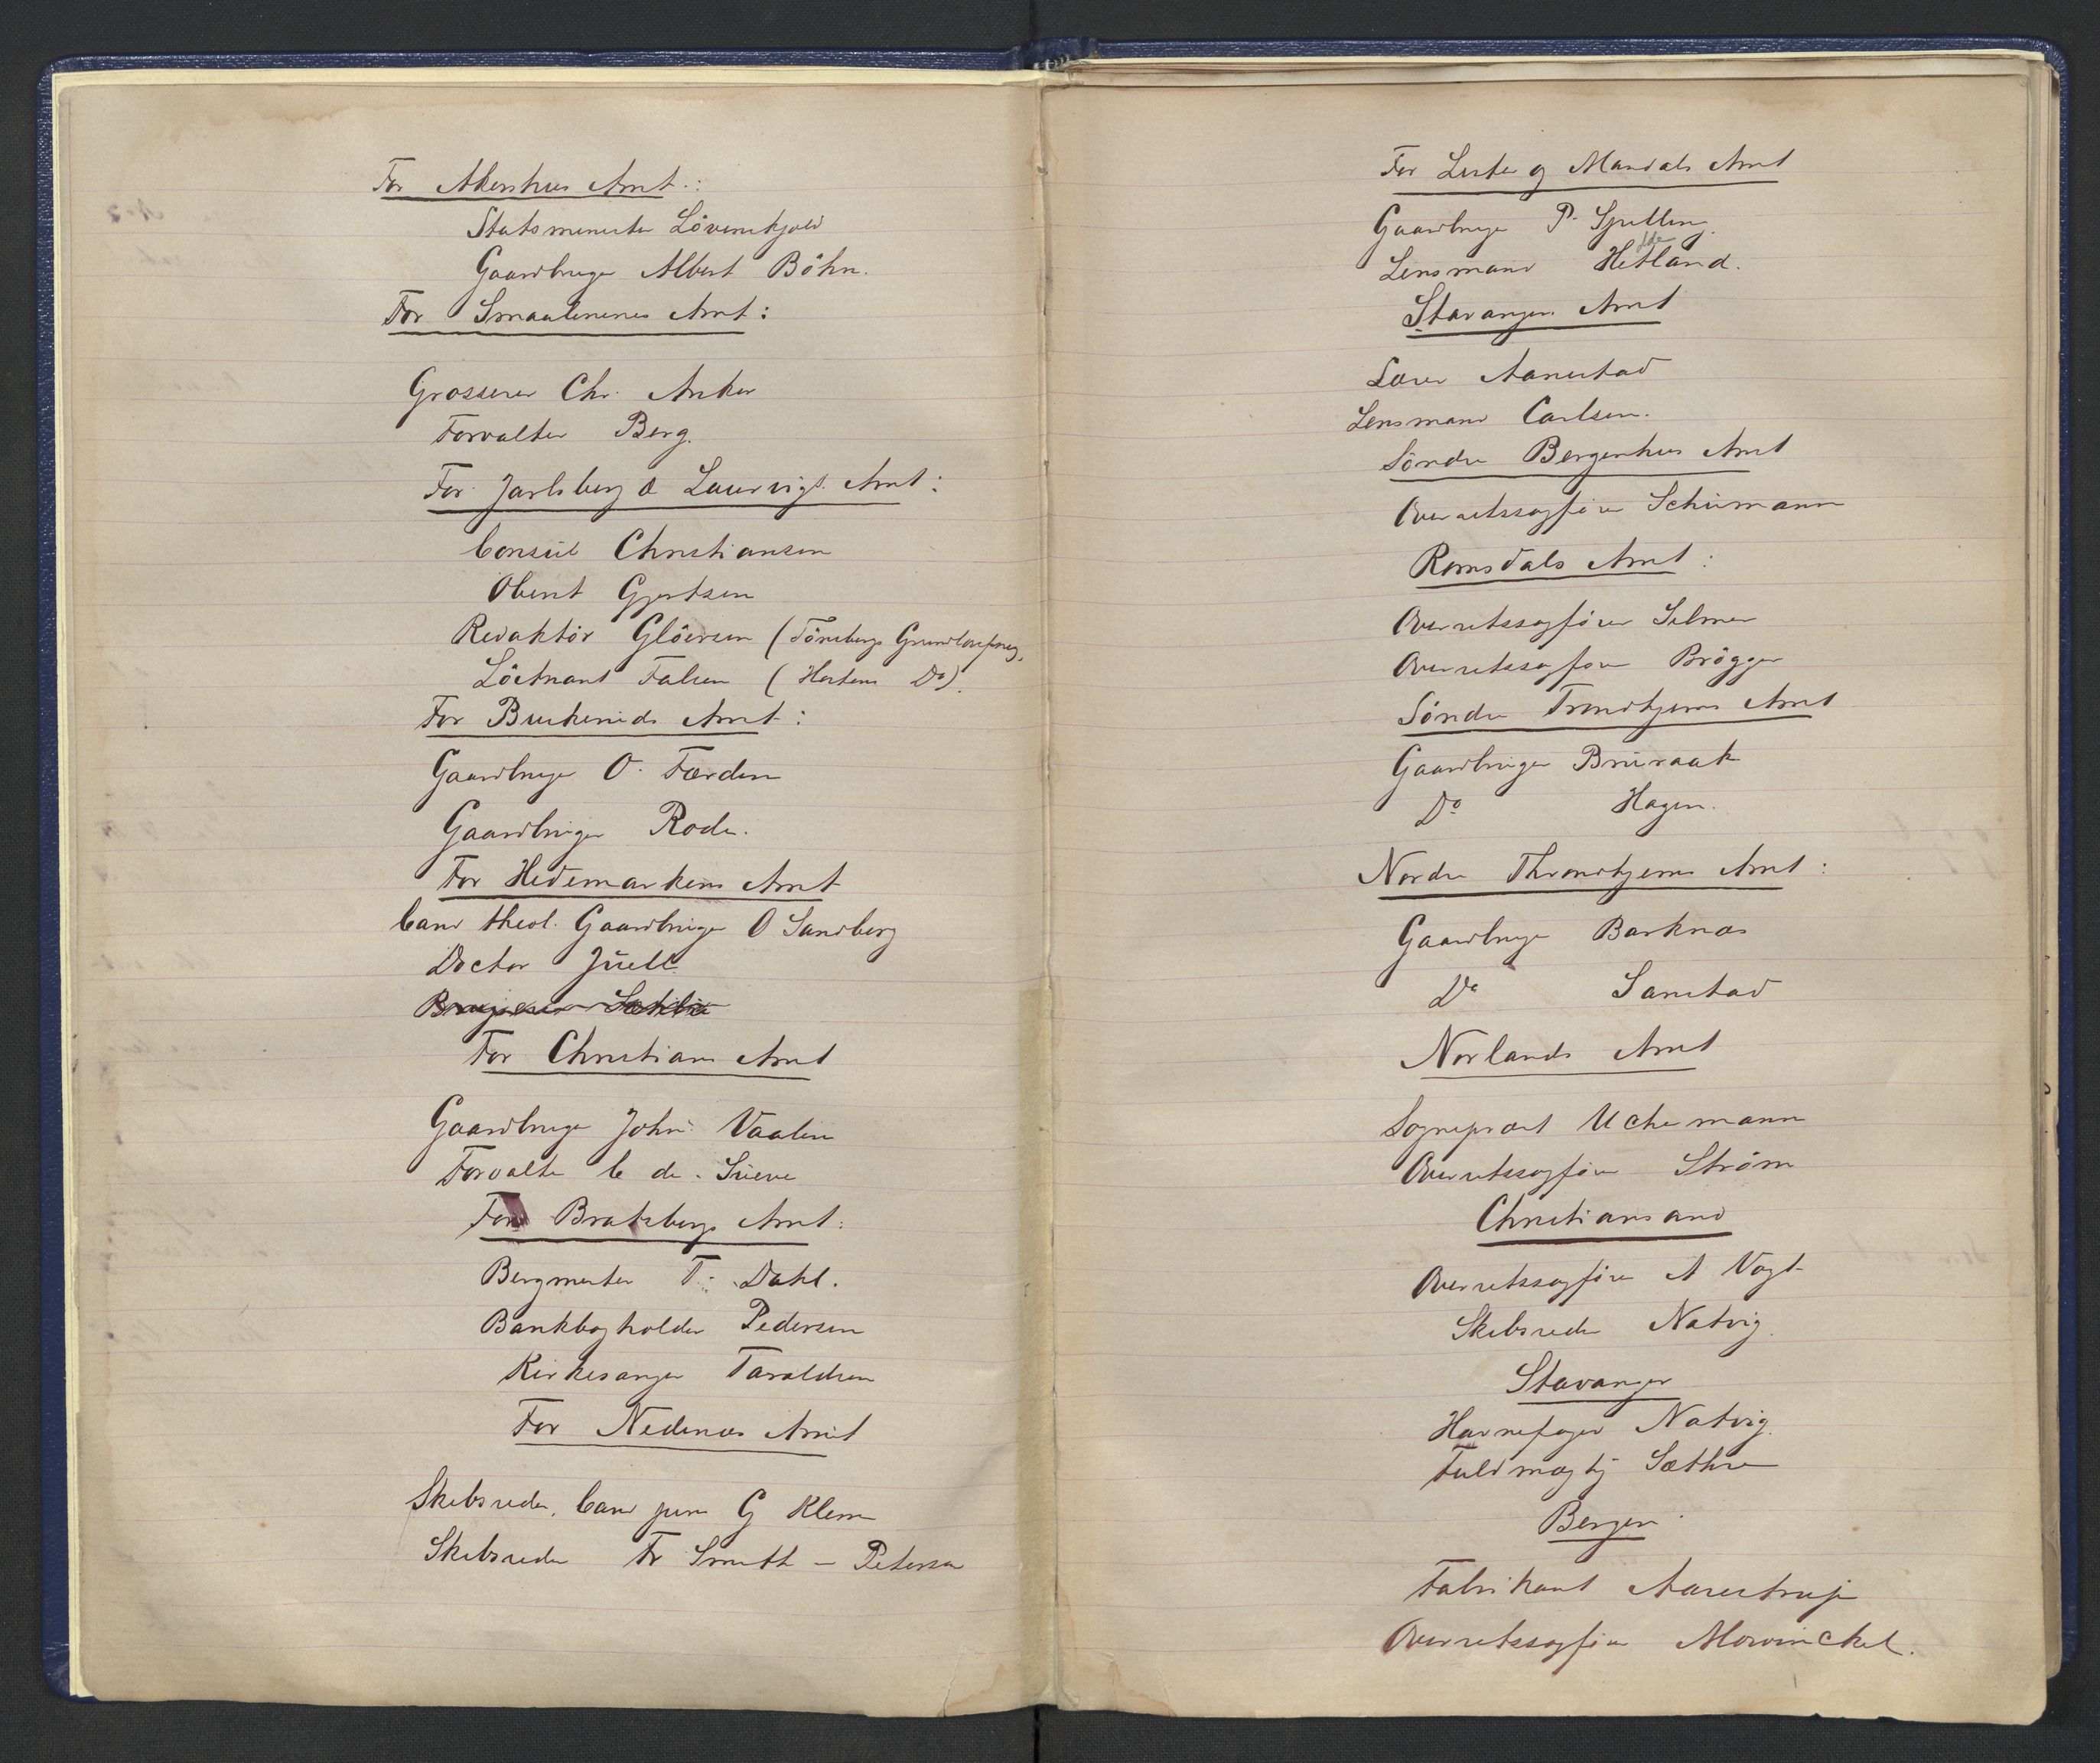 For Akershus Amt.:
Statsminister Lövenskjold
Gaardbruger Albert Böhn.
For Smaalenenes Amt:
Grosserer Chr. Anker
Forvalter Berg.
For Jarlsberg & Laurvigs Amt:
Consul Christiansen
Oberst Gjertsen
Redaktör Glöersen (Tönsbergs Grundlovsfng.
Löitnant Falsen (Hortens Do).
For Buskeruds Amt:
Gaardbruger O. Færden
Gaardbruger Rode.
For Hedemarkens Amt
Cand theol. Gaardbruger O Sandberg
Doctor Juell
For Christians Amt
Gaardbruger John: Vaalen
Forvalter C de. Sueve
For Bratsbergs Amt:
Bergmester T. Dahl.
Bankbogholder Pedersen
Kirkesanger Taraldsen
For Nedenæs Amt
Skibsreder, Cand jur G Klem
Skibsreder Fr Smith - Petersen
For Lister og Mandals Amt
Gaardbruger P. Spilling.
Lensmand Hetland.
Stavanger Amt
Lærer Aanestad
Lensmand Carlsen.
Söndre Bergenhus Amt
Overretssagförer Schumann
Romsdals Amt:
Overretssagförer Selmer
Overretssagförer Brögger
Söndre Trondhjems Amt
Gaardbruger Bruraak
Do Hagen.
Nordre Throndhjems Amt:
Gaardbruger Barknæs
Do Sanstad
Norlands Amt
Sogneprest Uchermann
Overretssagförer Ström
Christiansand
Overretssagförer A Vogt
Skibsreder Natvig
Stavanger
Havnefoged Natvig.
Fuldmægtig Sæthre
Bergen.
Fabrikant Aarestrup
Overretssagförer Mowinckel.